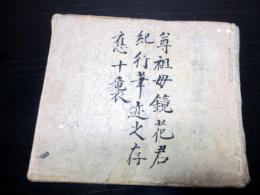 尊祖母鏡花君
紀行筆迹火存
應十襲